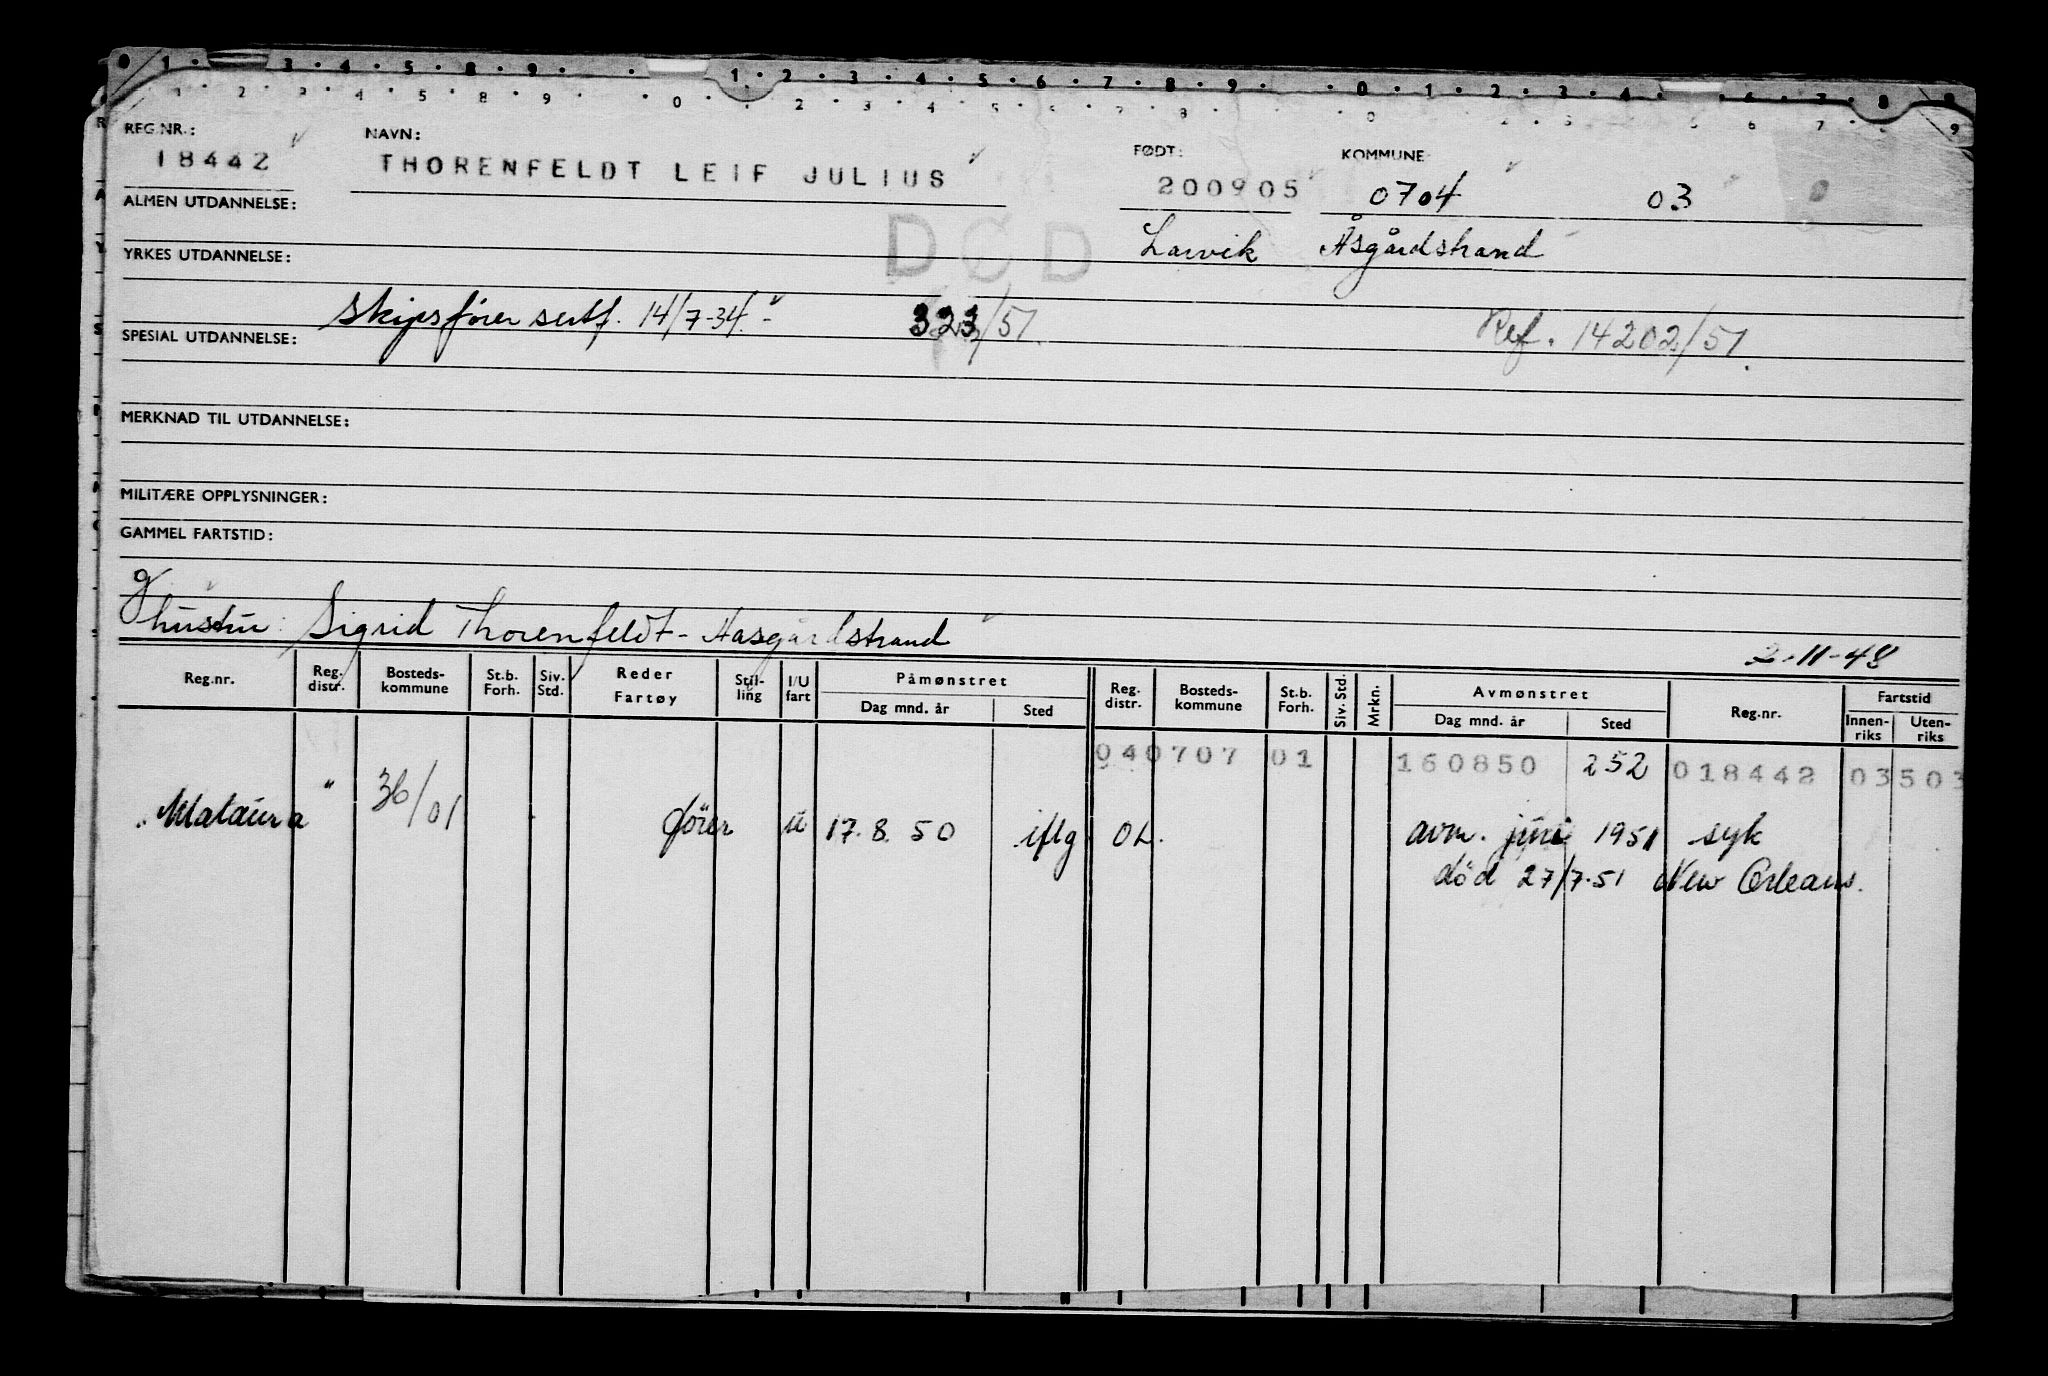 REG.NR.: NAVN: FØDT: KOMMUNE:
18442 THORENFELDT LEIF JULIUS 200905 0704 03
ALMEN UTDANNELSE:
DØD Larvik Åsgårdstrand
YRKES UTDANNELSE:
Skipsfører sertf. 14/7-34. 323/51. Ref. 14202/51.
SPESIAL UTDANNELSE:
MERKNAD TIL UTDANNELSE:
MILITÆRE OPPLYSNINGER:
GAMMEL FARTSTID:
g hustru: Sigrid Thorenfeldt - Aasgårdstrand 2-11-48
Reg.nr. Reg. distr. Bosteds-kommune St.b. Forh. Siv. Std. Reder Fartøy Stil-ling I/U fart Påmønstret Dag mnd. år Sted Reg. distr. Bosteds-kommune St.b. Forh. Siv. Std. Mrkn. Avmønstret Dag mnd. år Sted Reg.nr. Fartstid Innen-riks Uten-riks
040707 01 160850 252 018442 03503
"Mataura" 36/01 fører u 17.8.50 iflg OL. avm. juni 1951 syk
död 27/7-51 New Orleans.